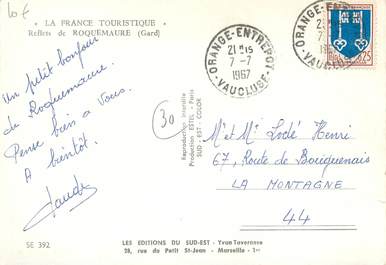 10 €
" LA FRANCE TOURISTIQUE "
Reflets de ROQUEMAURE (Gard)
Un petit bonjour
de Roquemaure.
Pense bien à Vous.
A bientôt.
ORANGE-ENTREPOT
21H15
7-7
1967
VAUCLUSE
ORANGE-ENTREPOT
7-7
VAUCLUSE
0,25
30
Reproduction interdite
Production ESTEL - Paris
SUD - EST - COLOR
Mr et Me Henri
67, Route de Bouguenais
LA MONTAGNE
44
SE 392
LES EDITIONS DU SUD-EST - Yvan Taverenne
28, rue du Petit St-Jean - Marseille - 1er